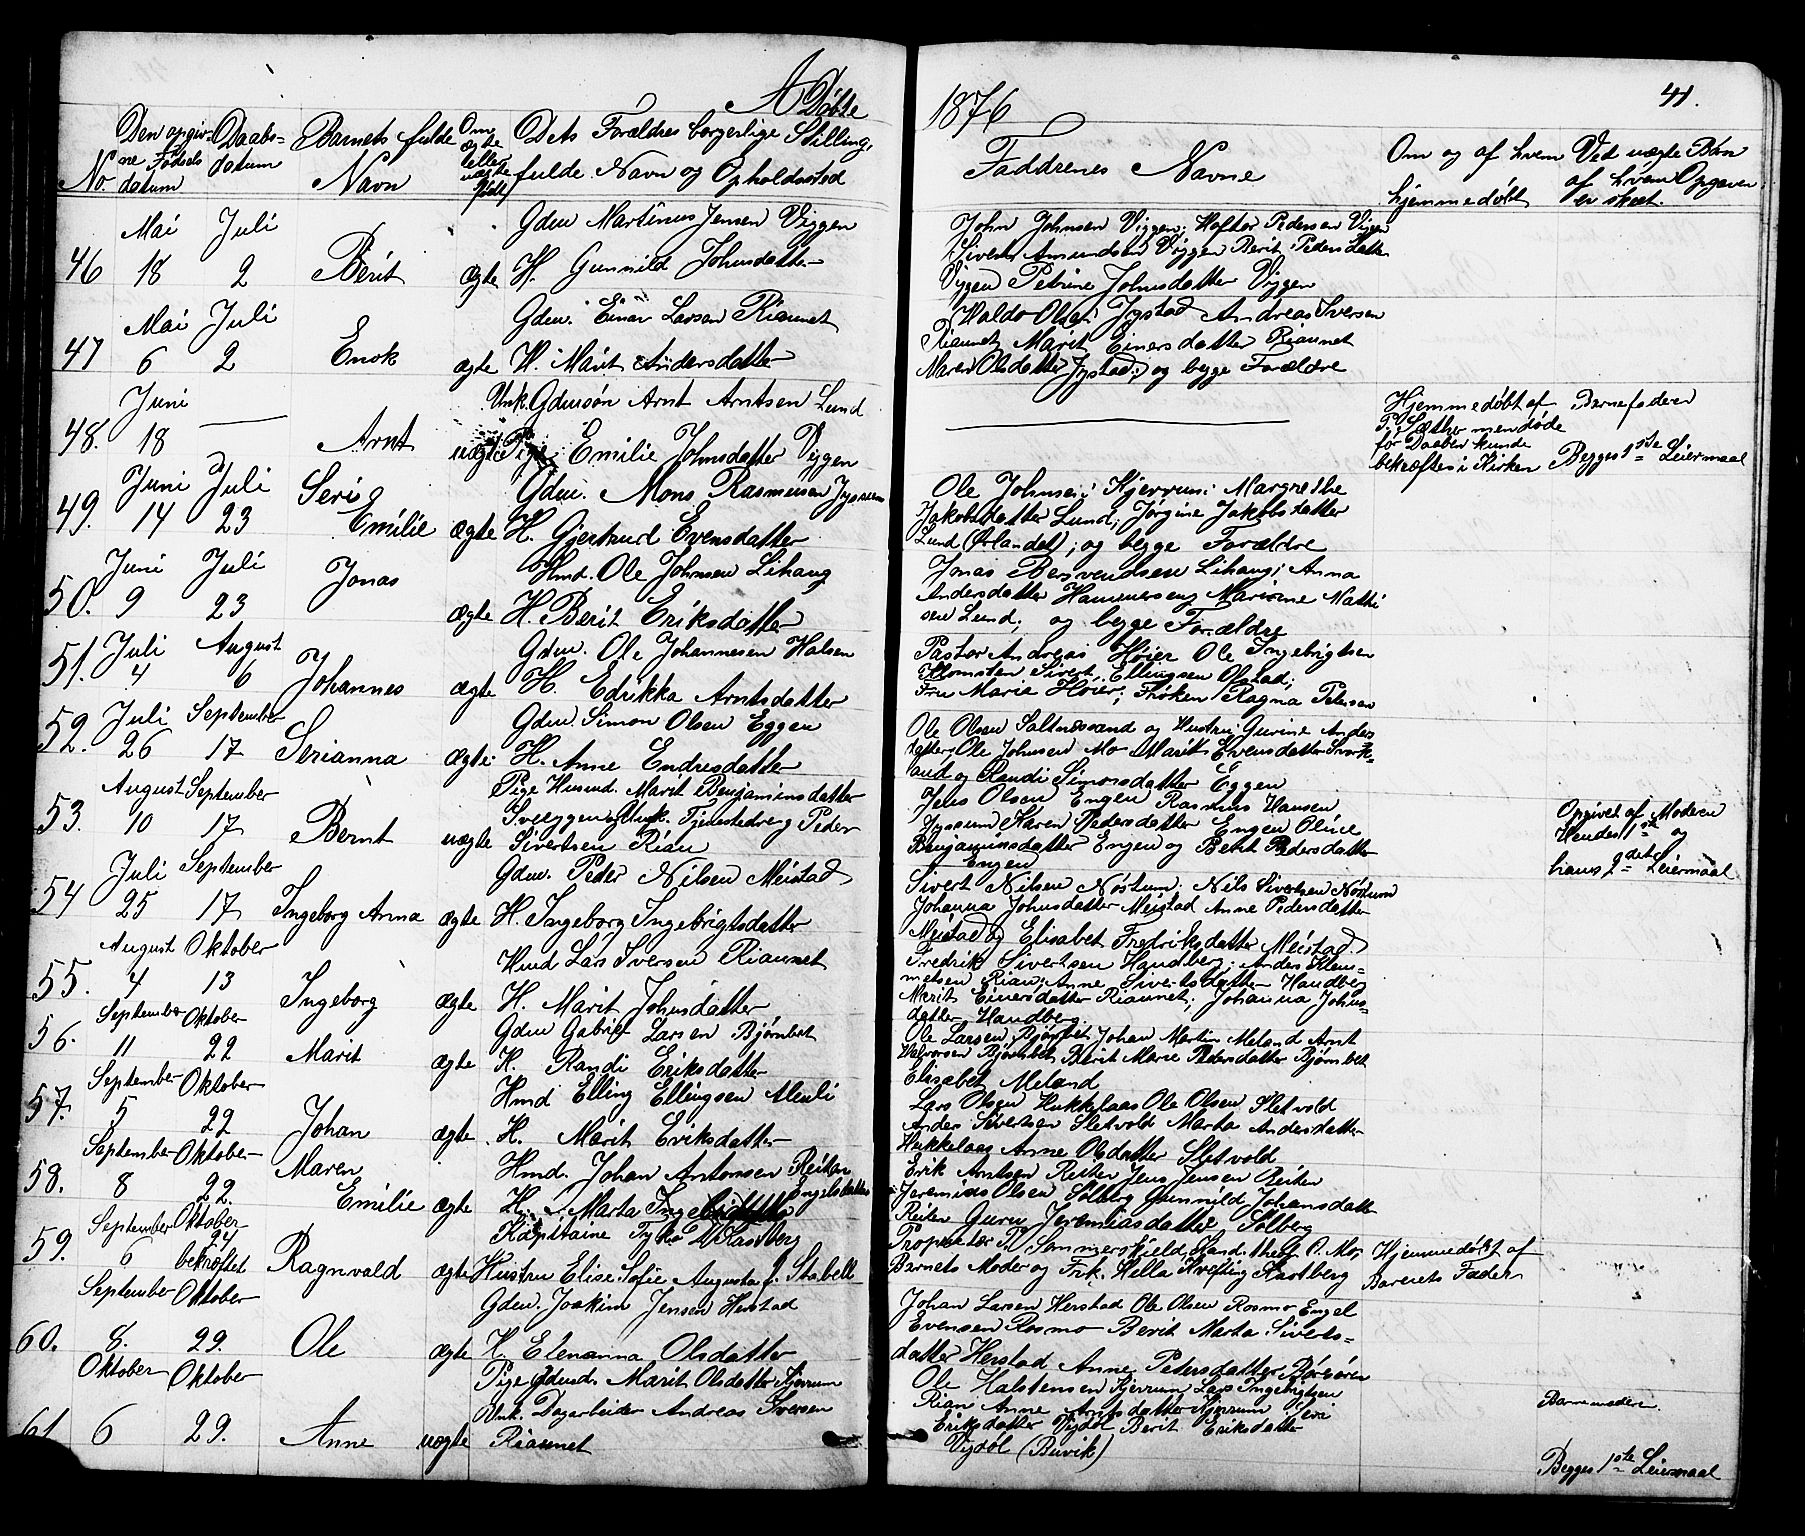 A Døbte
1876
41.
No
Den opgivne Fødselsdatum
Daabsdatum
Barnets fulde Navn
Om ægte eller uægte født
Dets Forældres borgerlige Stilling, fulde Navn og Opholdssted
Faddrenes Navne
Om og af hvem hjemmedøbt
Ved uægte Børn af hvem Opgaven er skeet.
46 Mai 18 Juli 2 Berit ægte
Gdm Martinus Jensen Viggen
H. Gunnild Johnsdatter
John Johnsen Viggen; Hoftor Pedersen Viggen
Sivert Amundsen Viggen Berit Pedersdatter
Viggen Petrine Johnsdatter Viggen
47 Mai 6 Juli 2 Enok ægte
Gdm. Einar Larsen Riaunet
H. Marit Andersdatter
Haldo Olsen Jystad Andreas Iversen
Riaunet Marit Einersdatter Riaunet
Maren Olsdatter Jystad; og begge Forældre
48. Juni 18 — Arnt uægte
Unk. Gdmsøn Arnt Arntsen Lund
Pige Emilie Johnsdatter Viggen
Hjemmedøbt af
P. Sæther men døde
før Daaben kunde
bekræftes i Kirken
Barnefaderen
Begges 1ste Leiermaal
49. Juni 14 Juli 23 Seri Emilie ægte
Gdm. Mons Rasmusen Jyssum
H. Gjertrud Evensdatter
Ole Johnsen Kjerrum; Margrethe
Jakobsdatter Lund; Jørgine Jakobsdatter
Lund (Ørlandet); og begge Forældre
50. Juni 9 Juli 23 Jonas ægte
Hmd. Ole Johnsen Lihaug
H. Berit Eriksdatter
Jonas Bersvendsen Lihaug; Anna
Andersdatter Hammerseng Marione Mathi
sen Lund; og begge Forældre
51. Juli 4 August 6 Johannes ægte
Gdm. Ole Johannesen Halsen
H. Edrikka Arntsdatter
Pastor Andreas Høier Ole Ingebrigtsen
Blomsten Sivert Ellingsen Olstad;
Fru Maria Høier; Frøken Ragna Petersen
52. Juli 26 September 17 Serianna ægte
Gdm. Simon Olsen Eggen
H. Anne Endresdatter
Ole Olsen Saltnessand og Hustru Gurine Anders
datter Ole Johnsen Mo Marit Evensdatter Snork-
land og Randi Simonsdatter Eggen
53. August 10 September 17 Bernt uægte
Pige Husmd. Marit Benjaminsdatter
Sveeggen og Unk. Tjenestedreng Peder
Sivertsen Rian
Jens Olsen Engen Rasmus Hansen
Jyssum Karen Pedersdatter Engen Oline
Benjaminsdatter Engen og Berit Pedersdatter
Engen
Opgivet af Moderen
Hendes 1ste og
hans 2det Leiermaal
54 Juli 25 September 17 Ingeborg Anna ægte
Gdm. Peder Nilsen Meistad
H. Ingeborg Ingebrigtsdatter
Sivert Nilsen Nøstum Nils Sivertsen Nøstum
Johanna Johnsdatter Meistad Anne Pedersdatter
Meistad og Elisabet Fredriksdatter Meistad.
55. August 4 Oktober 13 Ingeborg ægte
Hmd Lars Iversen Riaunet
H. Marit Johnsdatter
Fredrik Sivertsen Handberg; Anders Klem-
metsen Rian; Anne Sivertsdatter Handberg
Marit Einersdatter Riaunet; Johanna Johns-
datter Handberg.
56. September 11 Oktober 22 Marit ægte
Gdm Gabriel Larsen Bjørnbet
H. Randi Eriksdatter
Ole Larsen Bjørnbet Johan Martin Meland Arnt
Halvorsen Bjørnbet Berit Marie Pedersdatter Bjørnbet
Elisabet Meland
57. September 5 Oktober 22 Johan ægte
Hmd Elling Ellingsen Alenli
H. Marit Eriksdatter
Lars Olsen Hukkelaas Ole Olsen Sletvold
Anders Sivertsen Sletvold Marta Andersdatter
Hukkelaas Anne Olsdatter Sletvold
58. September 8 Oktober 22. Maren Emilie ægte
Hmd. Johan Antonsen Reiten
H. Marta Engelsdatter
Erik Arntsen Reiten Jens Jensen Reiten
Jeremias Olsen Solberg Gunnild Johansdatt
Reiten Guru Jeremiasdatter Solberg
59. September 6 Oktober 24 bekræftet Ragnvald ægte
Kapitaine Tyko Kastberg
Hustru Elise Sofie Augusta f. Stabell
Proprietær Th. Sommerskield, Cand. theol. O. Mo,
Barnets Moder og Frk. Hella Hvefting Kastberg
Hjemmedøbt af
Barnets Fader
60. September 8. Oktober 29. Ole ægte
Gdm. Joakim Jensen Herstad
H. Elenanna Olsdatter
Johan Larsen Herstad Ole Olsen Rosmo Engel
Evensen Rosmo Berit Marta Siverts-
datter Herstad Anne Petersdatter Børsøren
61 Oktober 6 Oktober 29. Anne uægte
Pige Gdmd. Marit Olsdatter Kjerrum
Unk. Dagarbeider Andreas Iversen
Riaunet
Ole Halstensen Kjerrum Lars Ingebrigtsen
Rian Anne Arntsdatter Kjerrum Seri
Eriksdatter Vigdøl Berit Eriksdatter
Vigdøl (Buvik)
Barnemoderen.
Begges 1ste Leiermaal